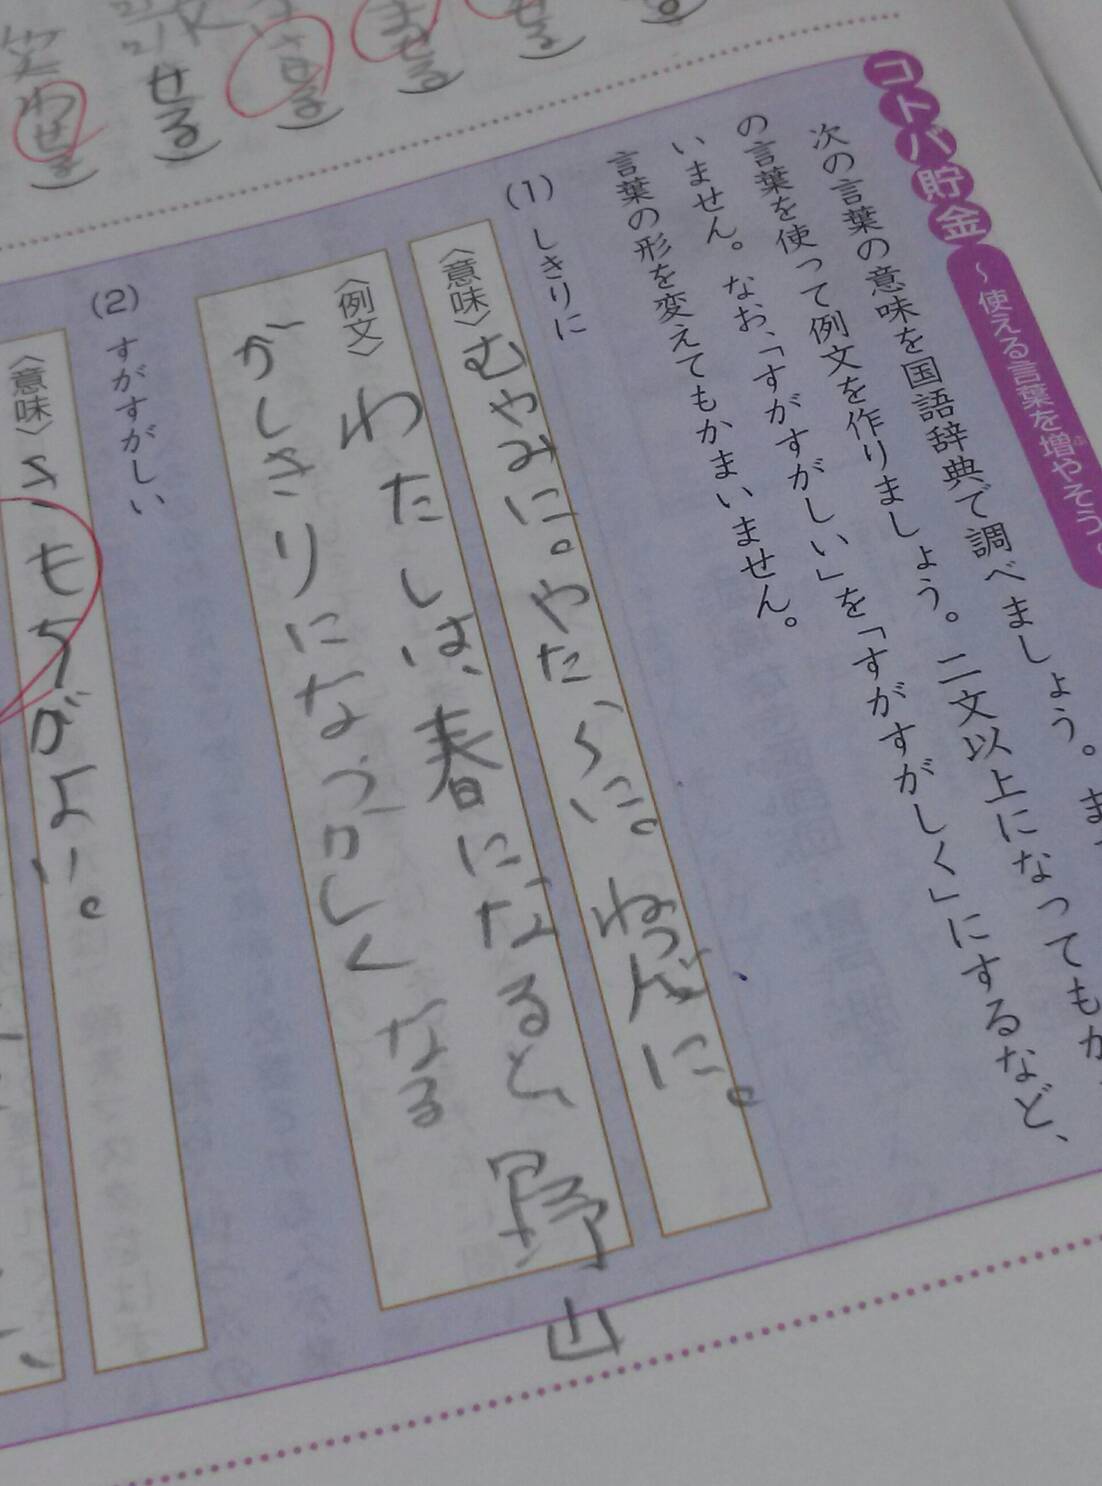 コトバ貯金
〜使える言葉を増やそう。
次の言葉の意味を国語辞典で調べましょう。ま
の言葉を使って例文を作りましょう。二文以上になってもか
いません。なお、「すがすがしい」を「すがすがしく」にするなど、
言葉の形を変えてもかまいません。
(1) しきりに
〈意味〉むやみに。やたらに。ねっしんに。
〈例文〉わたしは、春になると、野山
がしきりになつかしくなる
(2) すがすがしい
〈意味〉
もちがよい。
せる)
させる)
ませる)
せる)
笑わせる)